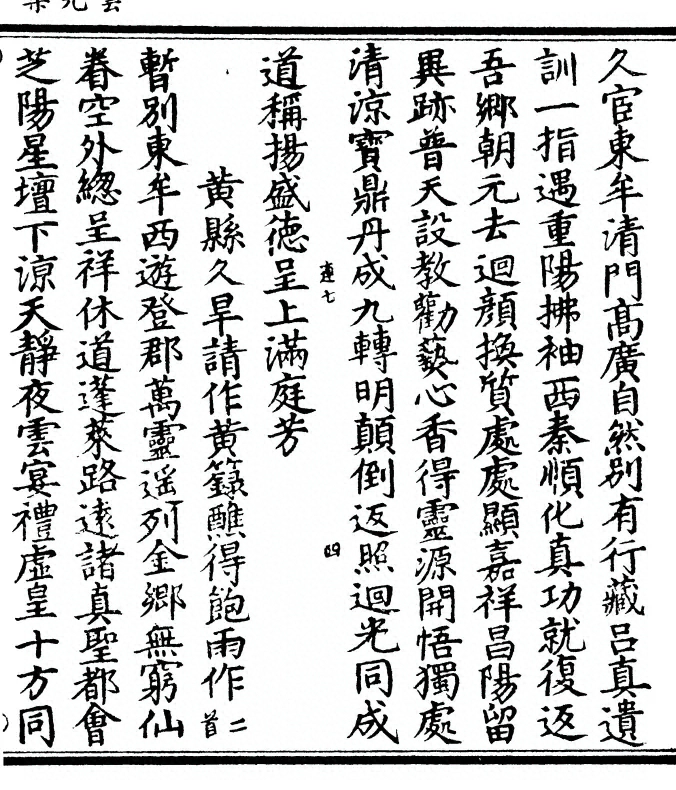 久宦東牟清門高廣自然別有行藏呂真遺
訓一指遇重陽拂袖西秦順化真功就復返
吾鄉朝元去迴顔換質處處顯嘉祥昌陽留
異跡普天設教勸藝心香得靈源開悟獨處
清涼寶鼎丹成九轉明顛倒返照迴光同成
道稱揚盛德呈上滿庭芳
連七
四
黄縣久旱請作黄籙醮得飽雨作二首
暫別東牟西遊登郡萬靈遥列金鄉無窮仙
眷空外總呈祥休道蓬萊路遠諸真聖都會
芝陽星壇下涼天靜夜雲宴禮虛皇十方同